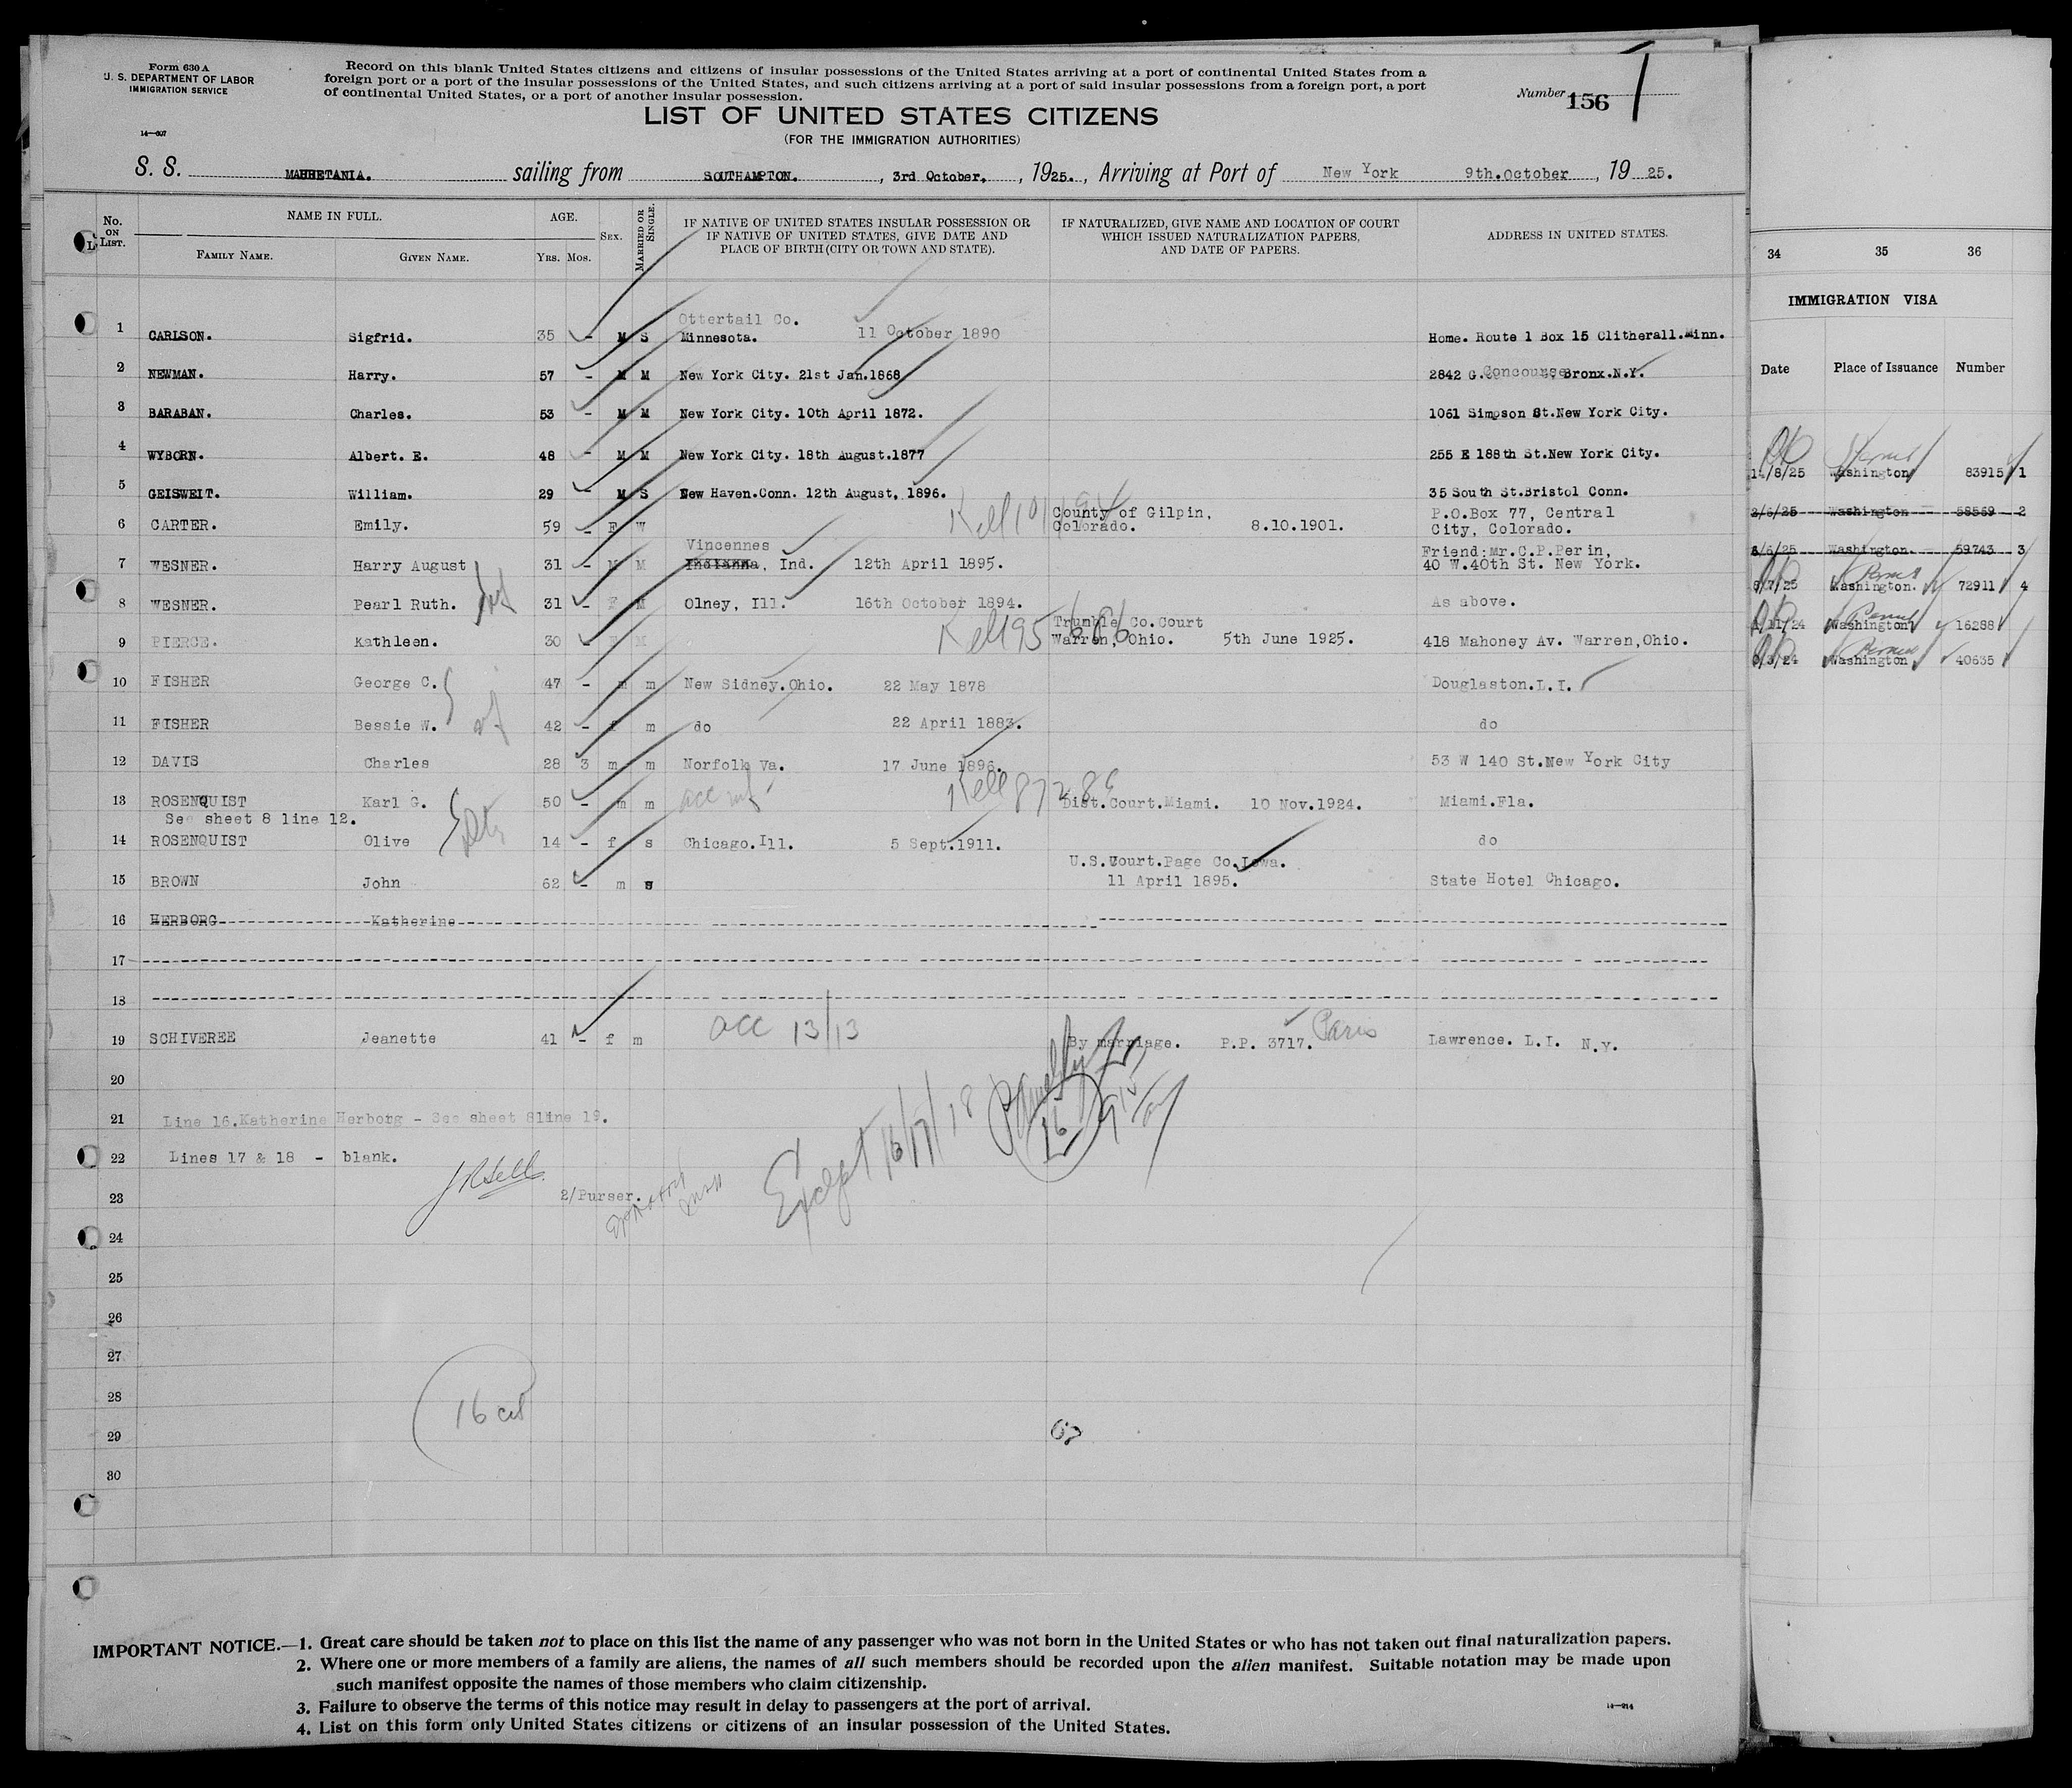 Form 630 A
U. S. DEPARTMENT OF LABOR
IMMIGRATION SERVICE
14—607
Record on this blank United States citizens and citizens of insular possessions of the United States arriving at a port of continental United States from a
foreign port or a port of the insular possessions of the United States, and such citizens arriving at a port of said insular possessions from a foreign port, a port
of continental United States, or a port of another insular possession.
Number 156
LIST OF UNITED STATES CITIZENS
(FOR THE IMMIGRATION AUTHORITIES)
S. S. MAURETANIA. sailing from SOUTHAMPTON. , 3rd October. , 1925. , Arriving at Port of New York 9th.October , 1925.
No. ON LIST. NAME IN FULL. AGE. SEX. MARRIED OR SINGLE. IF NATIVE OF UNITED STATES INSULAR POSSESSION OR IF NATIVE OF UNITED STATES, GIVE DATE AND PLACE OF BIRTH (CITY OR TOWN AND STATE). IF NATURALIZED, GIVE NAME AND LOCATION OF COURT WHICH ISSUED NATURALIZATION PAPERS, AND DATE OF PAPERS. ADDRESS IN UNITED STATES.
FAMILY NAME. GIVEN NAME. YRS. MOS.
Ottertail Co.
1 CARLSON. Sigfrid. 35 - M S Minnesota. 11 October 1890 Home. Route 1 Box 15 Clitherall.Minn.
2 NEWMAN. Harry. 57 - M M New York City. 21st Jan.1868 2842 G. Concourse, Bronx.N.Y.
3 BARABAN. Charles. 53 - M M New York City. 10th April 1872. 1061 Simpson St.New York City.
4 WYBORN. Albert. E. 48 - M M New York City. 18th August.1877 255 E 188th St.New York City.
5 GEISWEIT. William. 29 - M S New Haven.Conn. 12th August, 1896. 35 South St.Bristol Conn.
6 CARTER. Emily. 59 - F W County of Gilpin, Colorado. 8.10.1901. P.O.Box 77, Central City, Colorado.
Vincennes
7 WESNER. Harry August 31 - M M Indianna, Ind. 12th April 1895. Friend:Mr.C.P.Perin, 40 W.40th St. New York.
8 WESNER. Pearl Ruth. 31 - F M Olney, Ill. 16th October 1894. As above.
9 PIERCE. Kathleen. 30 - F M Trumble Co.Court Warren,Ohio. 5th June 1925. 418 Mahoney Av. Warren,Ohio.
10 FISHER George C. 47 - m m New Sidney.Ohio. 22 May 1878 Douglaston.L.I.
11 FISHER Bessie W. 42 - f m do 22 April 1883. do
12 DAVIS Charles 28 3 m m Norfolk Va. 17 June 1896. 53 W 140 St.New York City
13 ROSENQUIST Karl G. 50 - m m Dist.Court.Miami. 10 Nov.1924. Miami.Fla.
See sheet 8 line 12.
14 ROSENQUIST Olive 14 - f s Chicago.Ill. 5 Sept.1911. do
U.S.Court.Page Co.Iowa.
15 BROWN John 62 - m s 11 April 1895. State Hotel Chicago.
16 HERBORG Katherine
17
18
acc 13/13
19 SCHIVEREE Jeanette 41 - f m By marriage. P.P. 3717. Paris Lawrence. L.I. N.Y.
20
21 Line 16.Katherine Herborg - See sheet 8line 19.
22 Lines 17 & 18 - blank.
23 2/Purser.
Except 16/17/18
24
25
26
27
28
16 cit
29
30
IMPORTANT NOTICE.—1. Great care should be taken not to place on this list the name of any passenger who was not born in the United States or who has not taken out final naturalization papers.
2. Where one or more members of a family are aliens, the names of all such members should be recorded upon the alien manifest. Suitable notation may be made upon
such manifest opposite the names of those members who claim citizenship.
3. Failure to observe the terms of this notice may result in delay to passengers at the port of arrival.
4. List on this form only United States citizens or citizens of an insular possession of the United States.
14—914
34 35 36
IMMIGRATION VISA
Date Place of Issuance Number
/8/25 Washington 83915 1
/6/25 Washington 58569 2
/6/25 Washington. 59743 3
/7/25 Washington. 72911 4
/11/24 Washington 16288
/3/24 Washington 40635